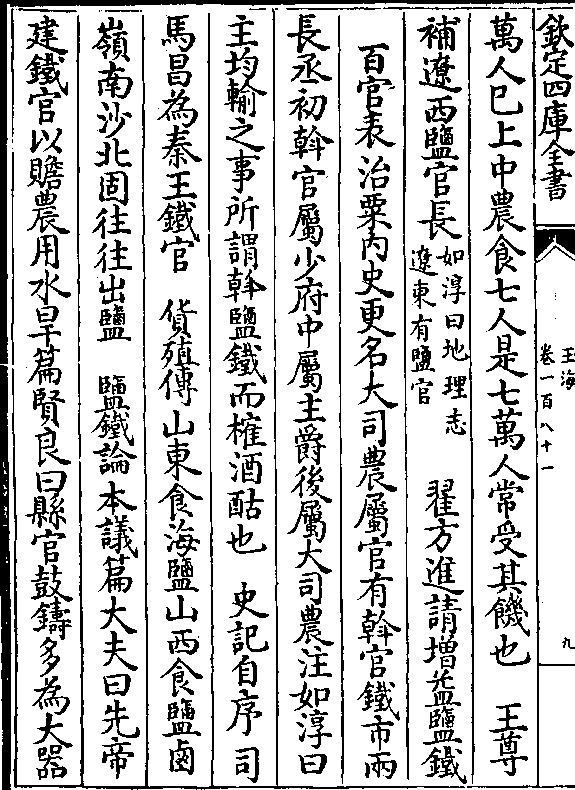 欽定四庫全書
玉海
卷一百八十一
九
萬人已上中農食七人是七萬人常受其饑也　王尊
補遼西鹽官長如淳曰地理志
遼東有鹽官　翟方進請增益鹽鐵
百官表治粟內史更名大司農屬官有斡官鐵市兩
長丞初斡官屬少府中屬主爵後屬大司農注如淳曰
主均輸之事所謂斡鹽鐵而榷酒酤也　史記自序司
馬昌為秦王鐵官　貨殖傳山東食海鹽山西食鹽鹵
嶺南沙北固往往出鹽　鹽鐵論本議篇大夫曰先帝
建鐵官以贍農用水旱篇賢良曰縣官鼓鑄多為大器